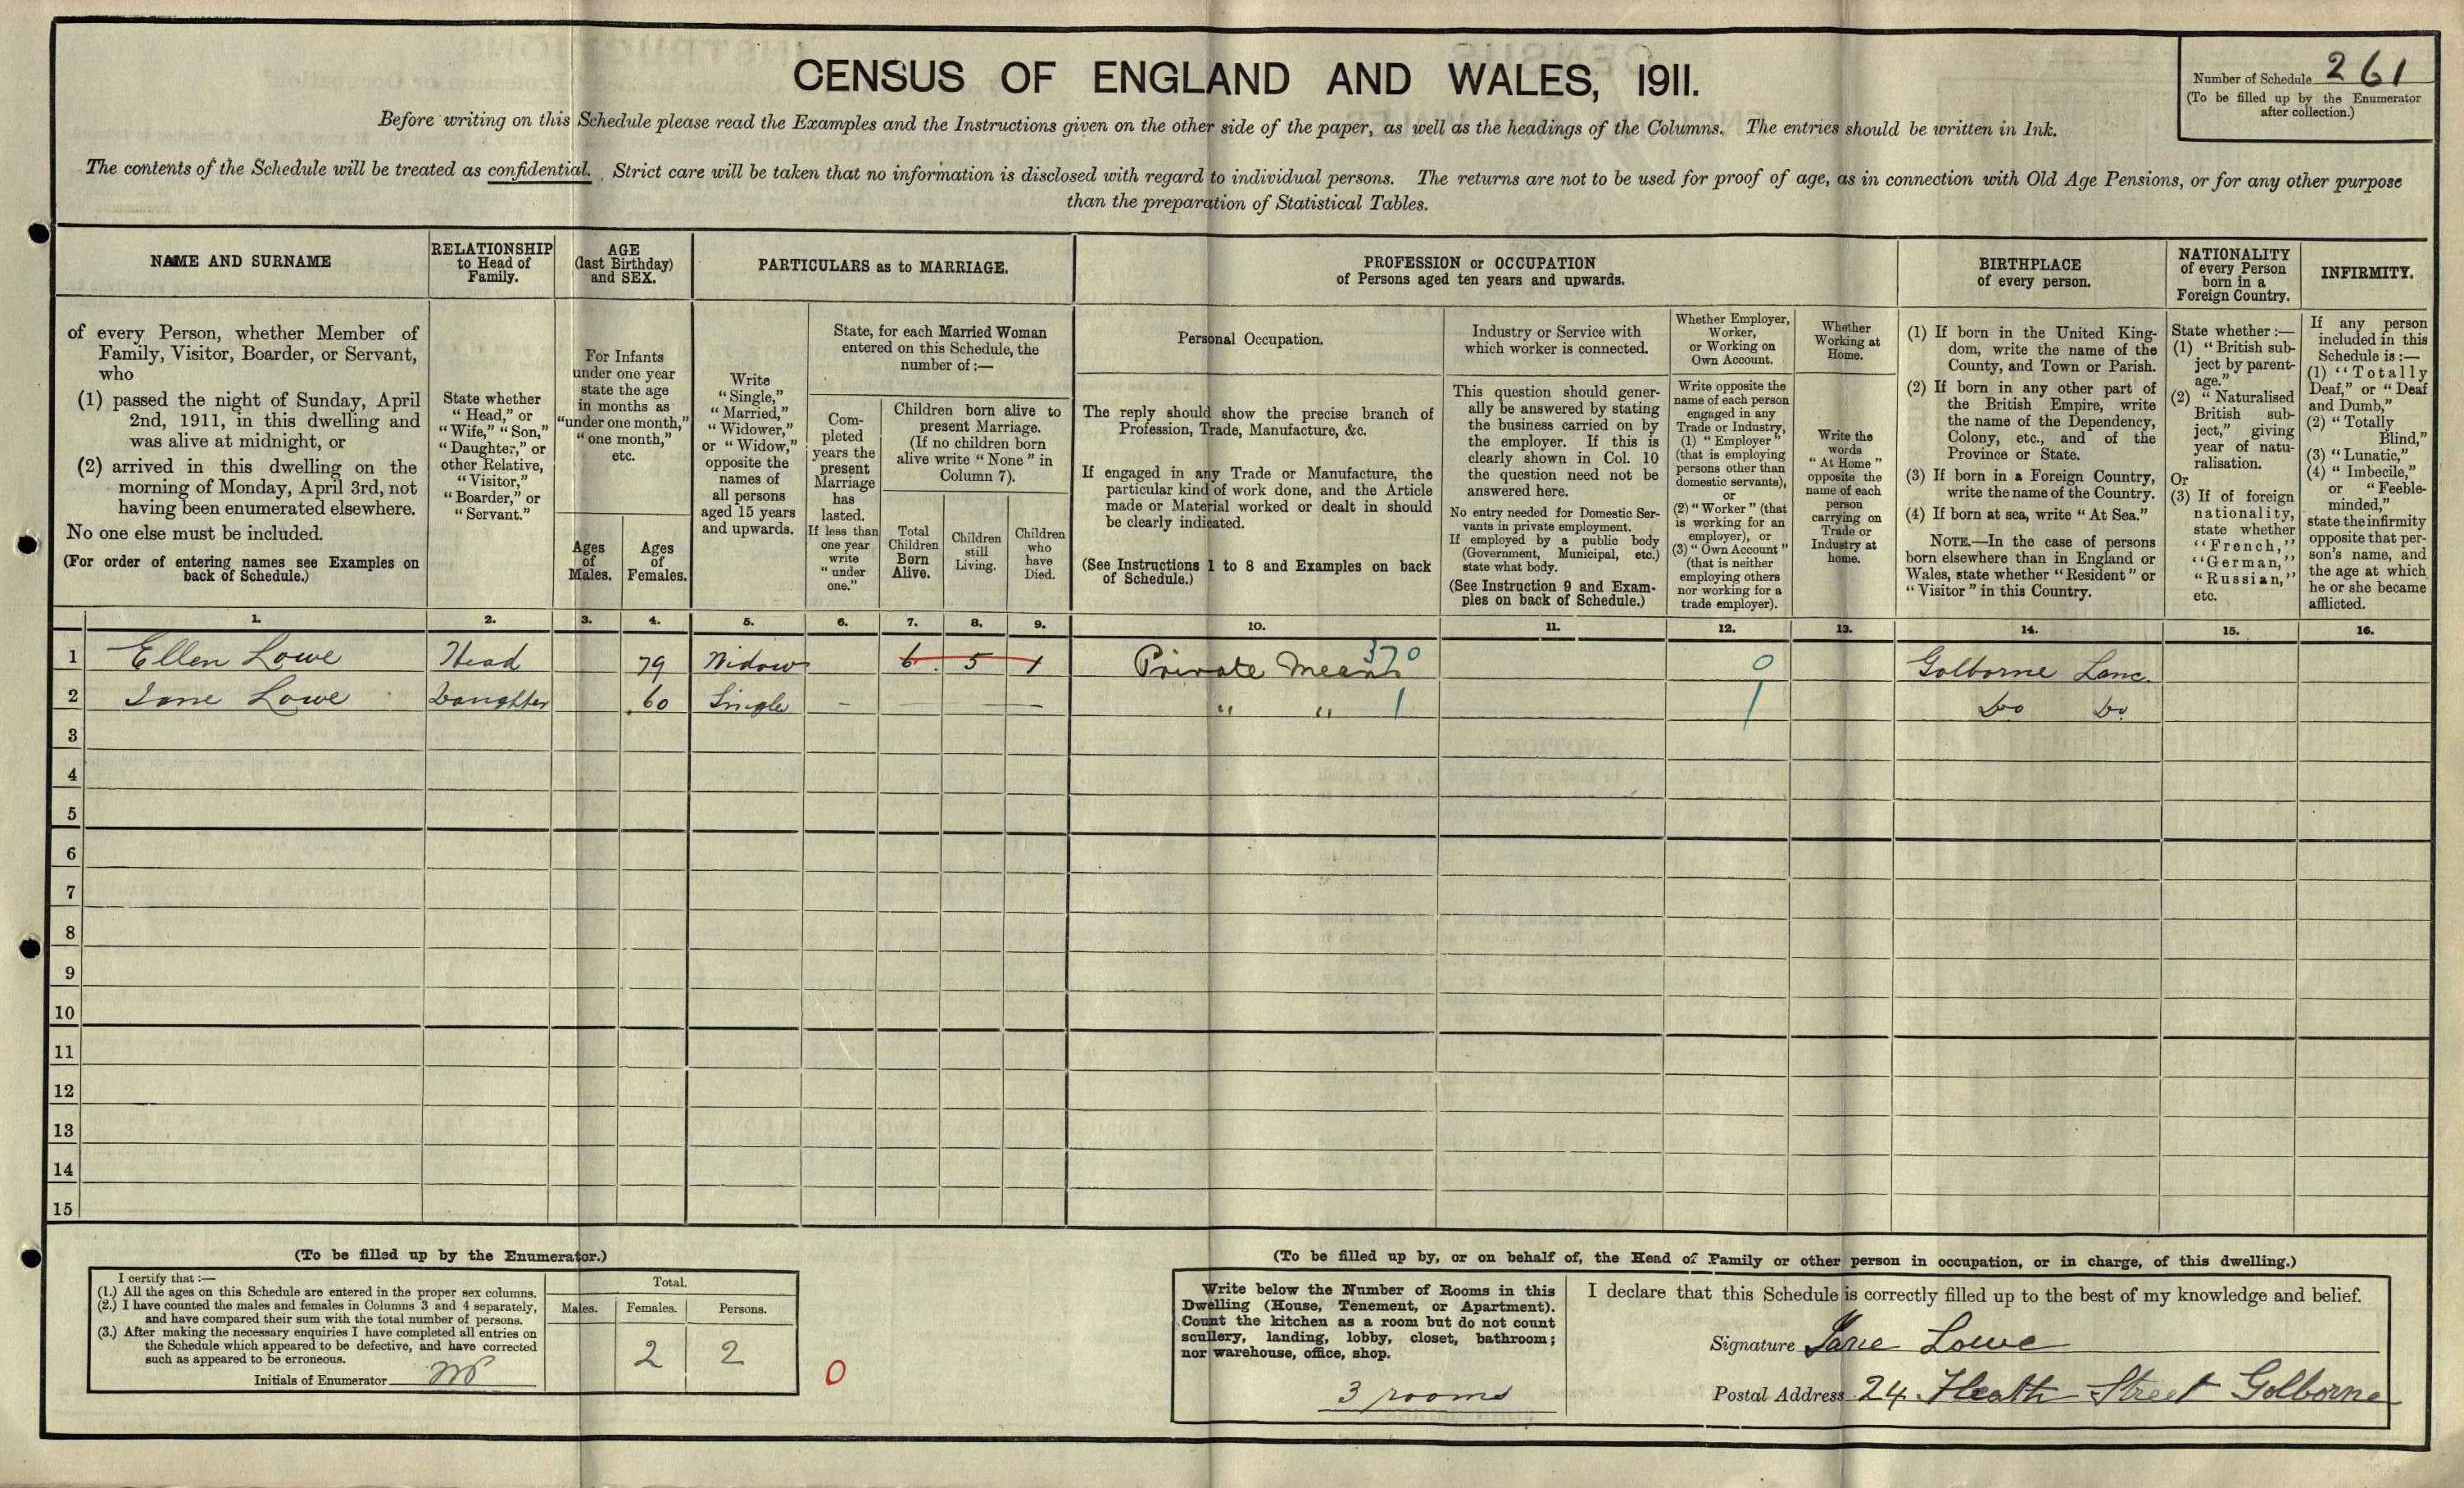 CENSUS OF ENGLAND AND WALES, 1911.
Number of Schedule 261
(To be filled up by the Enumerator
after collection.)
Before writing on this Schedule please read the Examples and the Instructions given on the other side of the paper, as well as the headings of the Columns. The entries should be written in Ink.
The contents of the Schedule will be treated as confidential. Strict care will be taken that no information is disclosed with regard to individual persons. The returns are not to be used for proof of age, as in connection with Old Age Pensions, or for any other purpose
than the preparation of Statistical Tables.
NAME AND SURNAME
of every Person, whether Member of
Family, Visitor, Boarder, or Servant,
who
(1) passed the night of Sunday, April
2nd, 1911, in this dwelling and
was alive at midnight, or
(2) arrived in this dwelling on the
morning of Monday, April 3rd, not
having been enumerated elsewhere.
No one else must be included.
(For order of entering names see Examples on
back of Schedule.)
RELATIONSHIP
to Head of
Family.
State whether
"Head," or
"Wife," "Son,"
"Daughter," or
other Relative,
"Visitor,"
"Boarder," or
"Servant."
AGE
(last Birthday)
and SEX.
For Infants
under one year
state the age
in months as
"under one month,"
"one month,"
etc.
Ages
of
Males.
Ages
of
Females.
PARTICULARS as to MARRIAGE.
Write
"Single,"
"Married,"
"Widower,"
or "Widow,"
opposite the
names of
all persons
aged 15 years
and upwards.
State, for each Married Woman
entered on this Schedule, the
number of:—
Com-
pleted
years the
present
Marriage
has
lasted.
If less than
one year
write
"under
one."
Children born alive to
present Marriage.
(If no children born
alive write "None" in
Column 7).
Total
Children
Born
Alive.
Children
still
Living.
Children
who
have
Died.
PROFESSION or OCCUPATION
of Persons aged ten years and upwards.
Personal Occupation.
The reply should show the precise branch of
Profession, Trade, Manufacture, &c.
If engaged in any Trade or Manufacture, the
particular kind of work done, and the Article
made or Material worked or dealt in should
be clearly indicated.
(See Instructions 1 to 8 and Examples on back
of Schedule.)
Industry or Service with
which worker is connected.
This question should gener-
ally be answered by stating
the business carried on by
the employer. If this is
clearly shown in Col. 10
the question need not be
answered here.
No entry needed for Domestic Ser-
vants in private employment.
If employed by a public body
(Government, Municipal, etc.)
state what body.
(See Instruction 9 and Exam-
ples on back of Schedule.)
Whether Employer,
Worker,
or Working on
Own Account.
Write opposite the
name of each person
engaged in any
Trade or Industry,
(1) "Employer"
(that is employing
persons other than
domestic servants),
or
(2) "Worker" (that
is working for an
employer), or
(3) "Own Account"
(that is neither
employing others
nor working for a
trade employer).
Whether
Working at
Home.
Write the
words
"At Home"
opposite the
name of each
person
carrying on
Trade or
Industry at
home.
BIRTHPLACE
of every person.
(1) If born in the United King-
dom, write the name of the
County, and Town or Parish.
(2) If born in any other part of
the British Empire, write
the name of the Dependency,
Colony, etc., and of the
Province or State.
(3) If born in a Foreign Country,
write the name of the Country.
(4) If born at sea, write "At Sea."
NOTE.—In the case of persons
born elsewhere than in England or
Wales, state whether "Resident" or
"Visitor" in this Country.
NATIONALITY
of every Person
born in a
Foreign Country.
State whether:—
(1) "British sub-
ject by parent-
age."
(2) "Naturalised
British sub-
ject," giving
year of natu-
ralisation.
Or
(3) If of foreign
nationality,
state whether
"French,"
"German,"
"Russian,"
etc.
INFIRMITY.
If any person
included in this
Schedule is:—
(1) "Totally
Deaf," or "Deaf
and Dumb,"
(2) "Totally
Blind,"
(3) "Lunatic,"
(4) "Imbecile,"
or "Feeble-
minded,"
state the infirmity
opposite that per-
son's name, and
the age at which
he or she became
afflicted.
1. 2. 3. 4. 5. 6. 7. 8. 9. 10. 11. 12. 13. 14. 15. 16.
1 Ellen Lowe Head 79 Widow 6 5 1 Private Means 370 0 Golborne Lanc.
2 Jane Lowe Daughter 60 Single – — — — " " 1 1 Do Do
3
4
5
6
7
8
9
10
11
12
13
14
15
(To be filled up by the Enumerator.)
I certify that:—
(1.) All the ages on this Schedule are entered in the proper sex columns.
(2.) I have counted the males and females in Columns 3 and 4 separately,
and have compared their sum with the total number of persons.
(3.) After making the necessary enquiries I have completed all entries on
the Schedule which appeared to be defective, and have corrected
such as appeared to be erroneous.
Initials of Enumerator
Total.
Males. Females. Persons.
2 2
0
(To be filled up by, or on behalf of, the Head of Family or other person in occupation, or in charge, of this dwelling.)
Write below the Number of Rooms in this
Dwelling (House, Tenement, or Apartment).
Count the kitchen as a room but do not count
scullery, landing, lobby, closet, bathroom;
nor warehouse, office, shop.
3 rooms
I declare that this Schedule is correctly filled up to the best of my knowledge and belief.
Signature Jane Lowe
Postal Address 24 Heath Street Golborne